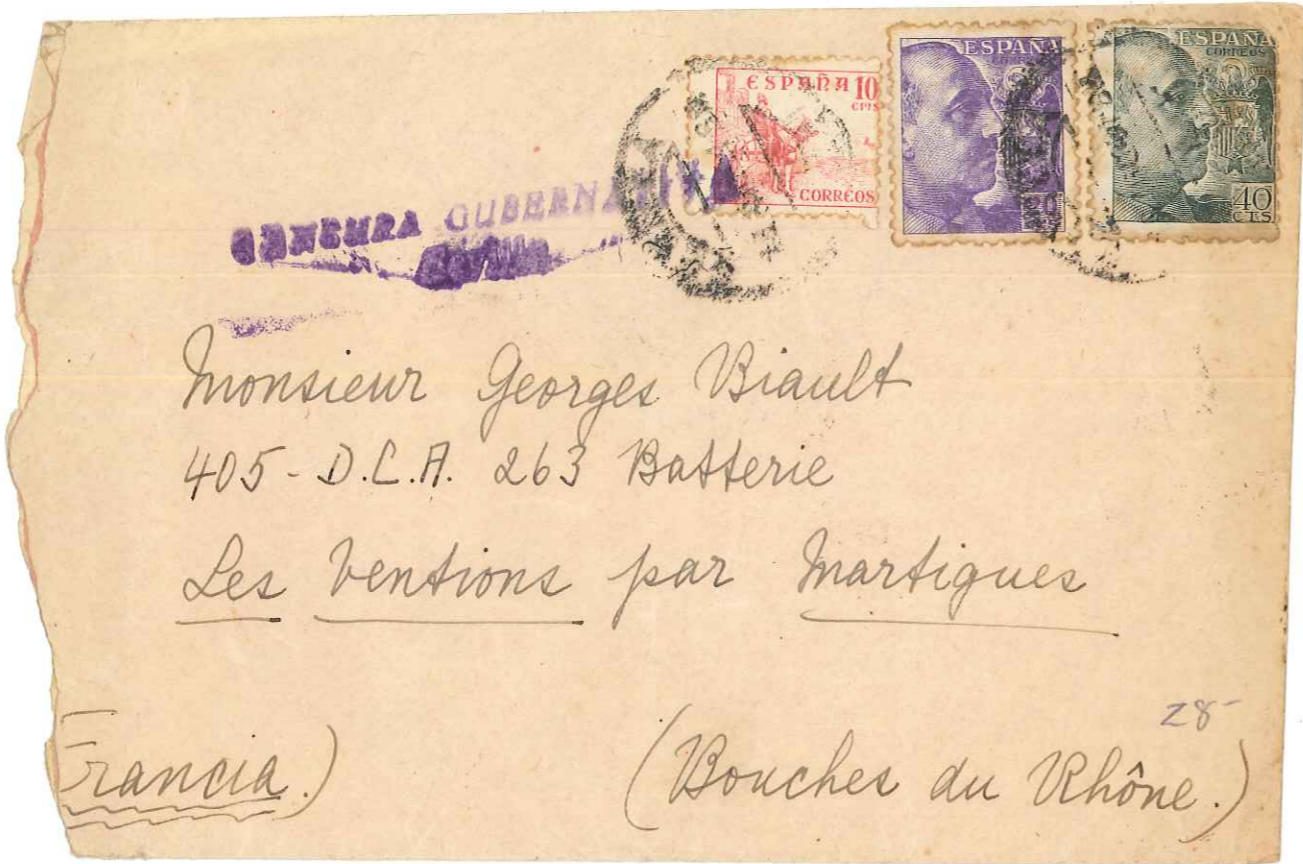 ESPAÑA 10
CTS
CORREOS
ESPAÑA
ESPAÑA
CORREOS
40
CTS
CENSURA GUBERNATIVA
Monsieur Georges Biault
405 - D.C.A. 263 Batterie
Les Ventions par Martigues
28-
Francia.)
(Bouches du Rhône.)